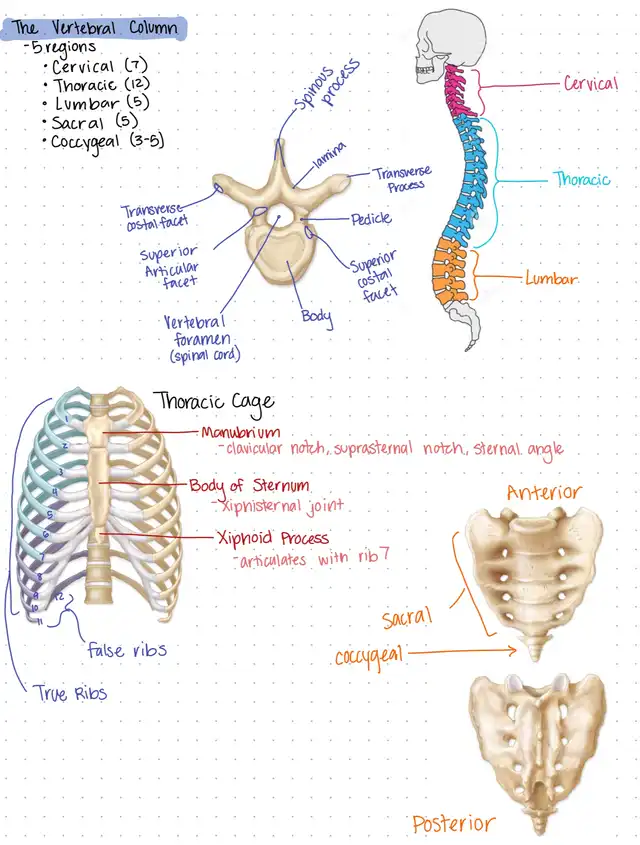 The Vertebral Column
-5 regions
• Cervical (7)
• Thoracic (12)
• Lumbar (5)
• Sacral (5)
• Coccygeal (3-5)
Spinous process
lamina
Transverse
Process
Transverse
costal facet
Pedicle
Superior
Articular
facet
Superior
costal
facet
Vertebral
foramen
(spinal cord)
Body
Cervical
Thoracic
Lumbar
Thoracic Cage
Manubrium
-clavicular notch, suprasternal notch, sternal angle
Body of Sternum
-xiphisternal joint
Xiphoid Process
-articulates with rib 7
1
2
3
4
5
6
7
8
9
10
11
12
False ribs
True Ribs
Anterior
Sacral
coccygeal
Posterior